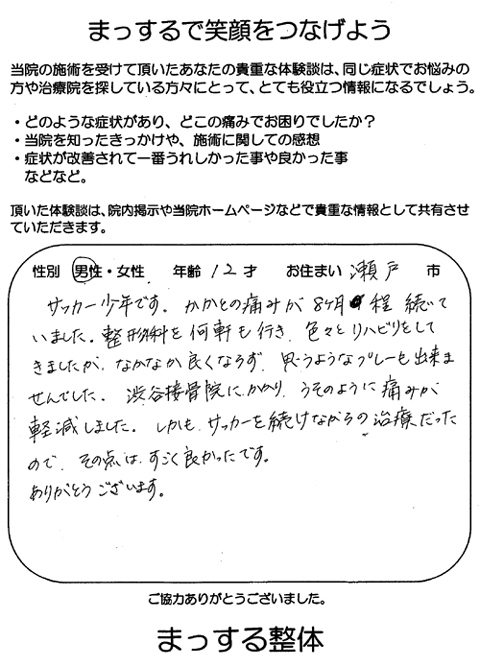 まっするで笑顔をつなげよう
当院の施術を受けて頂いたあなたの貴重な体験談は、同じ症状でお悩みの
方や治療院を探している方々にとって、とても役立つ情報になるでしょう。
・どのような症状があり、どこの痛みでお困りでしたか?
・当院を知ったきっかけや、施術に関しての感想
・症状が改善されて一番うれしかった事や良かった事
などなど。
頂いた体験談は、院内掲示や当院ホームページなどで貴重な情報として共有させ
ていただきます。
性別 男性・女性 年齢 12 才 お住まい 瀬戸 市
サッカー少年です。かかとの痛みが8ヶ月程続いて
いました。整形外科を何軒も行き、色々とリハビリをして
きましたが、なかなか良くならず、思うようなプレーも出来ま
せんでした。渋谷接骨院にかかり、うそのように痛みが
軽減しました。しかも、サッカーを続けながらの治療だった
ので、その点は、すごく良かったです。
ありがとうございます。
ご協力ありがとうございました。
まっする整体